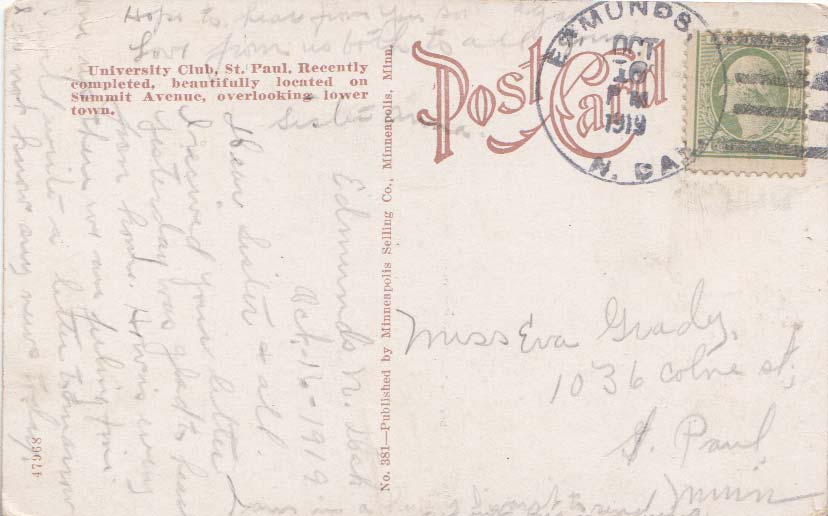 University Club, St. Paul. Recently
completed, beautifully located on
Summit Avenue, overlooking lower
town.
Post Card
EDMUNDS,
OCT
P M
1919
N. DAK
No. 381—Published by Minneapolis Selling Co., Minneapolis, Minn.
47968
Miss Eva Grady,
1036 Colne st,
St. Paul,
Minn
Edmunds N. Dak
Oct. 1919
Dear Sister & all.
Received your letter
yesterday was glad to hear
from you. How is every
one there we are feeling fine.
will write a letter tomorrow
do not know any news today.
Hope to hear from you soon
Love from us both to all
Sister